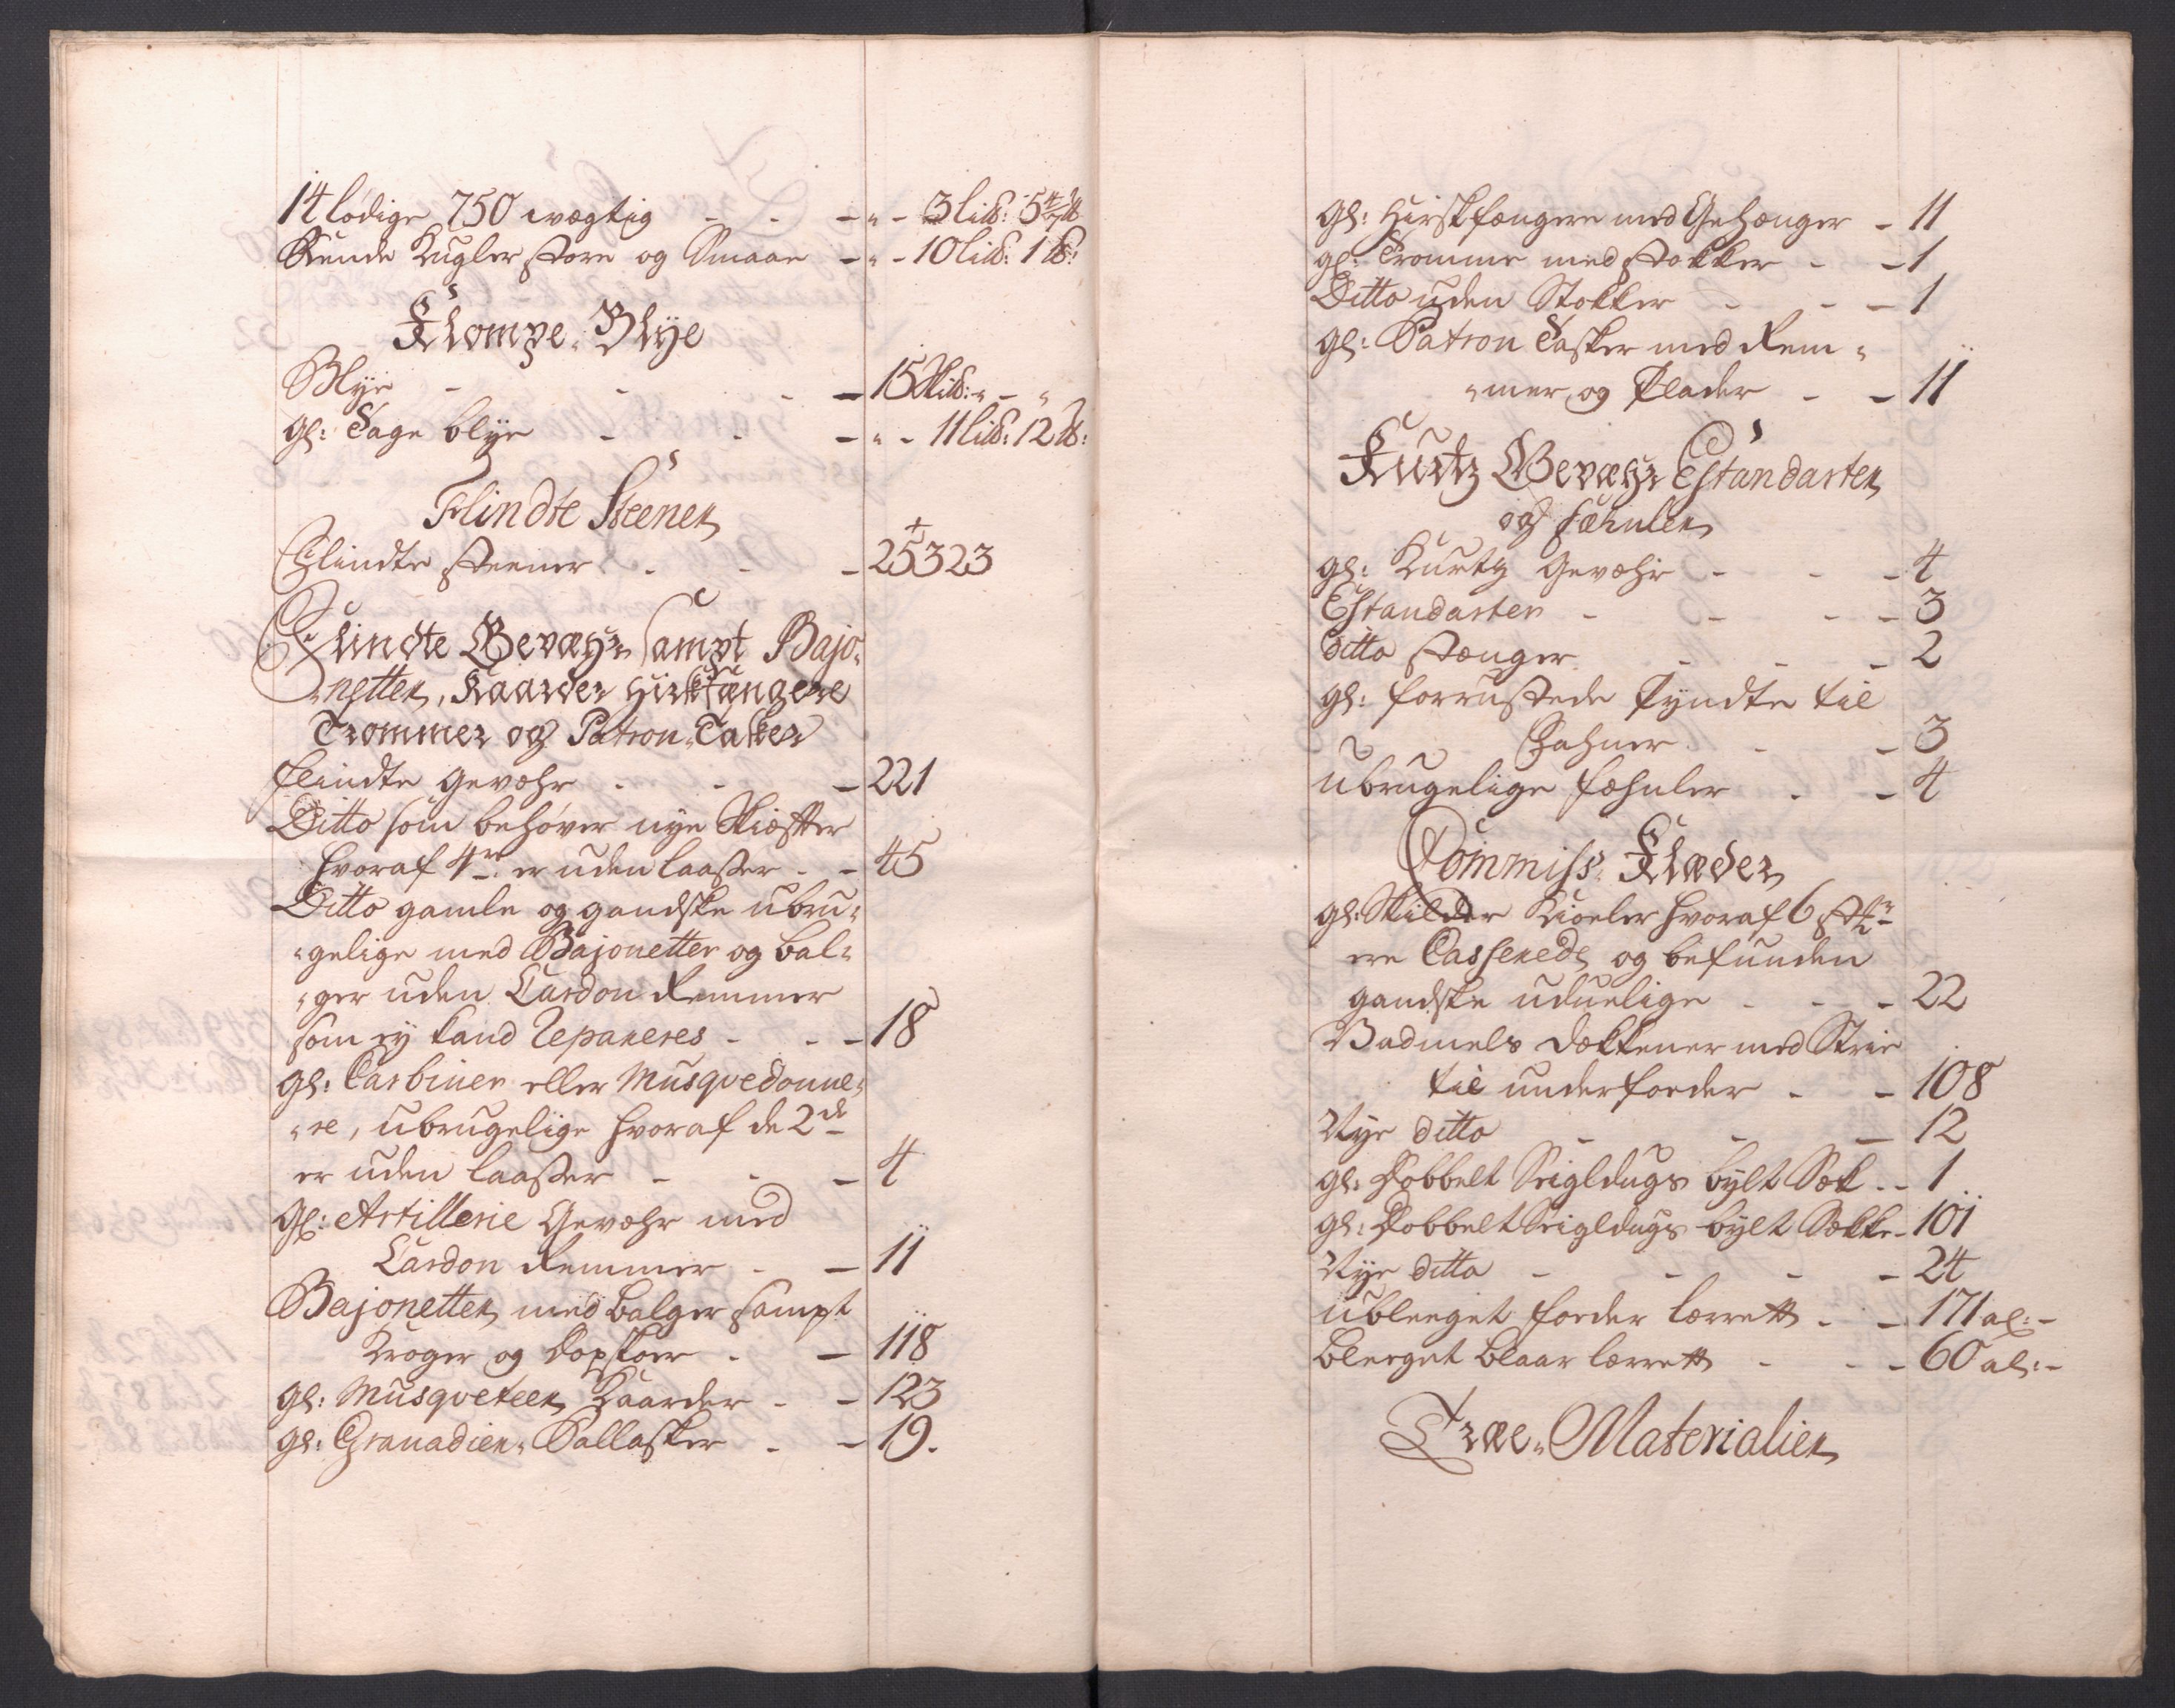 14 lodige 750 wægtig - - - " - 3 lit: 5 4/7 lb
Runde Kugler store og Smaae - " - 10 lit: 1 lb:
Klompe-Blye
Blye - - - 15 Skit: " - "
gl: Tage blye - - - " - 11 lit: 12 lb:
Flindte Steener
Flindte steener - - - 25323
Flindte Gevæhr Sampt Bajo-
-netter, Kaarder Hirsfængere
Trommer og Patron-Tasker
flindte gevæhr - - - 221
Ditto som behøver nye Skiæffter
hvoraf 4re er uden laaser - - 45
Ditto gamle og gandske ubru-
-gelige med Bajonetter og bal-
-ger uden Cardon Remmer
som ey kand Repareres - - - 18
gl: Carbiner eller Musqvedonne-
-re, ubrugelige hvoraf de 2de
er uden laaser - - - 4
gl: Artillerie Gevæhr med
Cardon Remmer - - 11
Bajonetter med balger sampt
Kroger og Dopskoer - - 118
gl: Musqveteer Kaarder - - 123
gl: Granadier-Pallasker - - 19.
gl: Hirskfængere med Gehænger - 11
gl: Tromme med stokker - - 1
Ditto uden Stokker - - - 1
gl: Patron Tasker med Rem-
-mer og Plader - - 11
Kurtz Gevæhr Estandarter
og fæhnler
gl: Kurtz gevæhr - - - 4
Estandarter - - - - 3
ditto stænger - - - 2
gl: forrustede Pyndte til
Fahner - - 3
ubrugelige fæhnler - - 4
Commiss-Klæder
gl: Skilder Kioeler hvoraf 6 stkr
ere Casserede og befunden
gandske uduelige - - - 22
Vadmels Dækkener med Strie
til underfoeder - - 108
Nye ditto - - - 12
gl: Dobbelt Seigldugs bylt Sæk - - 1
gl: Dobbelt Seigldugs bylt Sække - 101
Nye ditto - - - - 24
ubleeget foeder lærrett - - 171 al: -
bleeget blaar lærrett - - - 60 al: -
Træe-Materialier